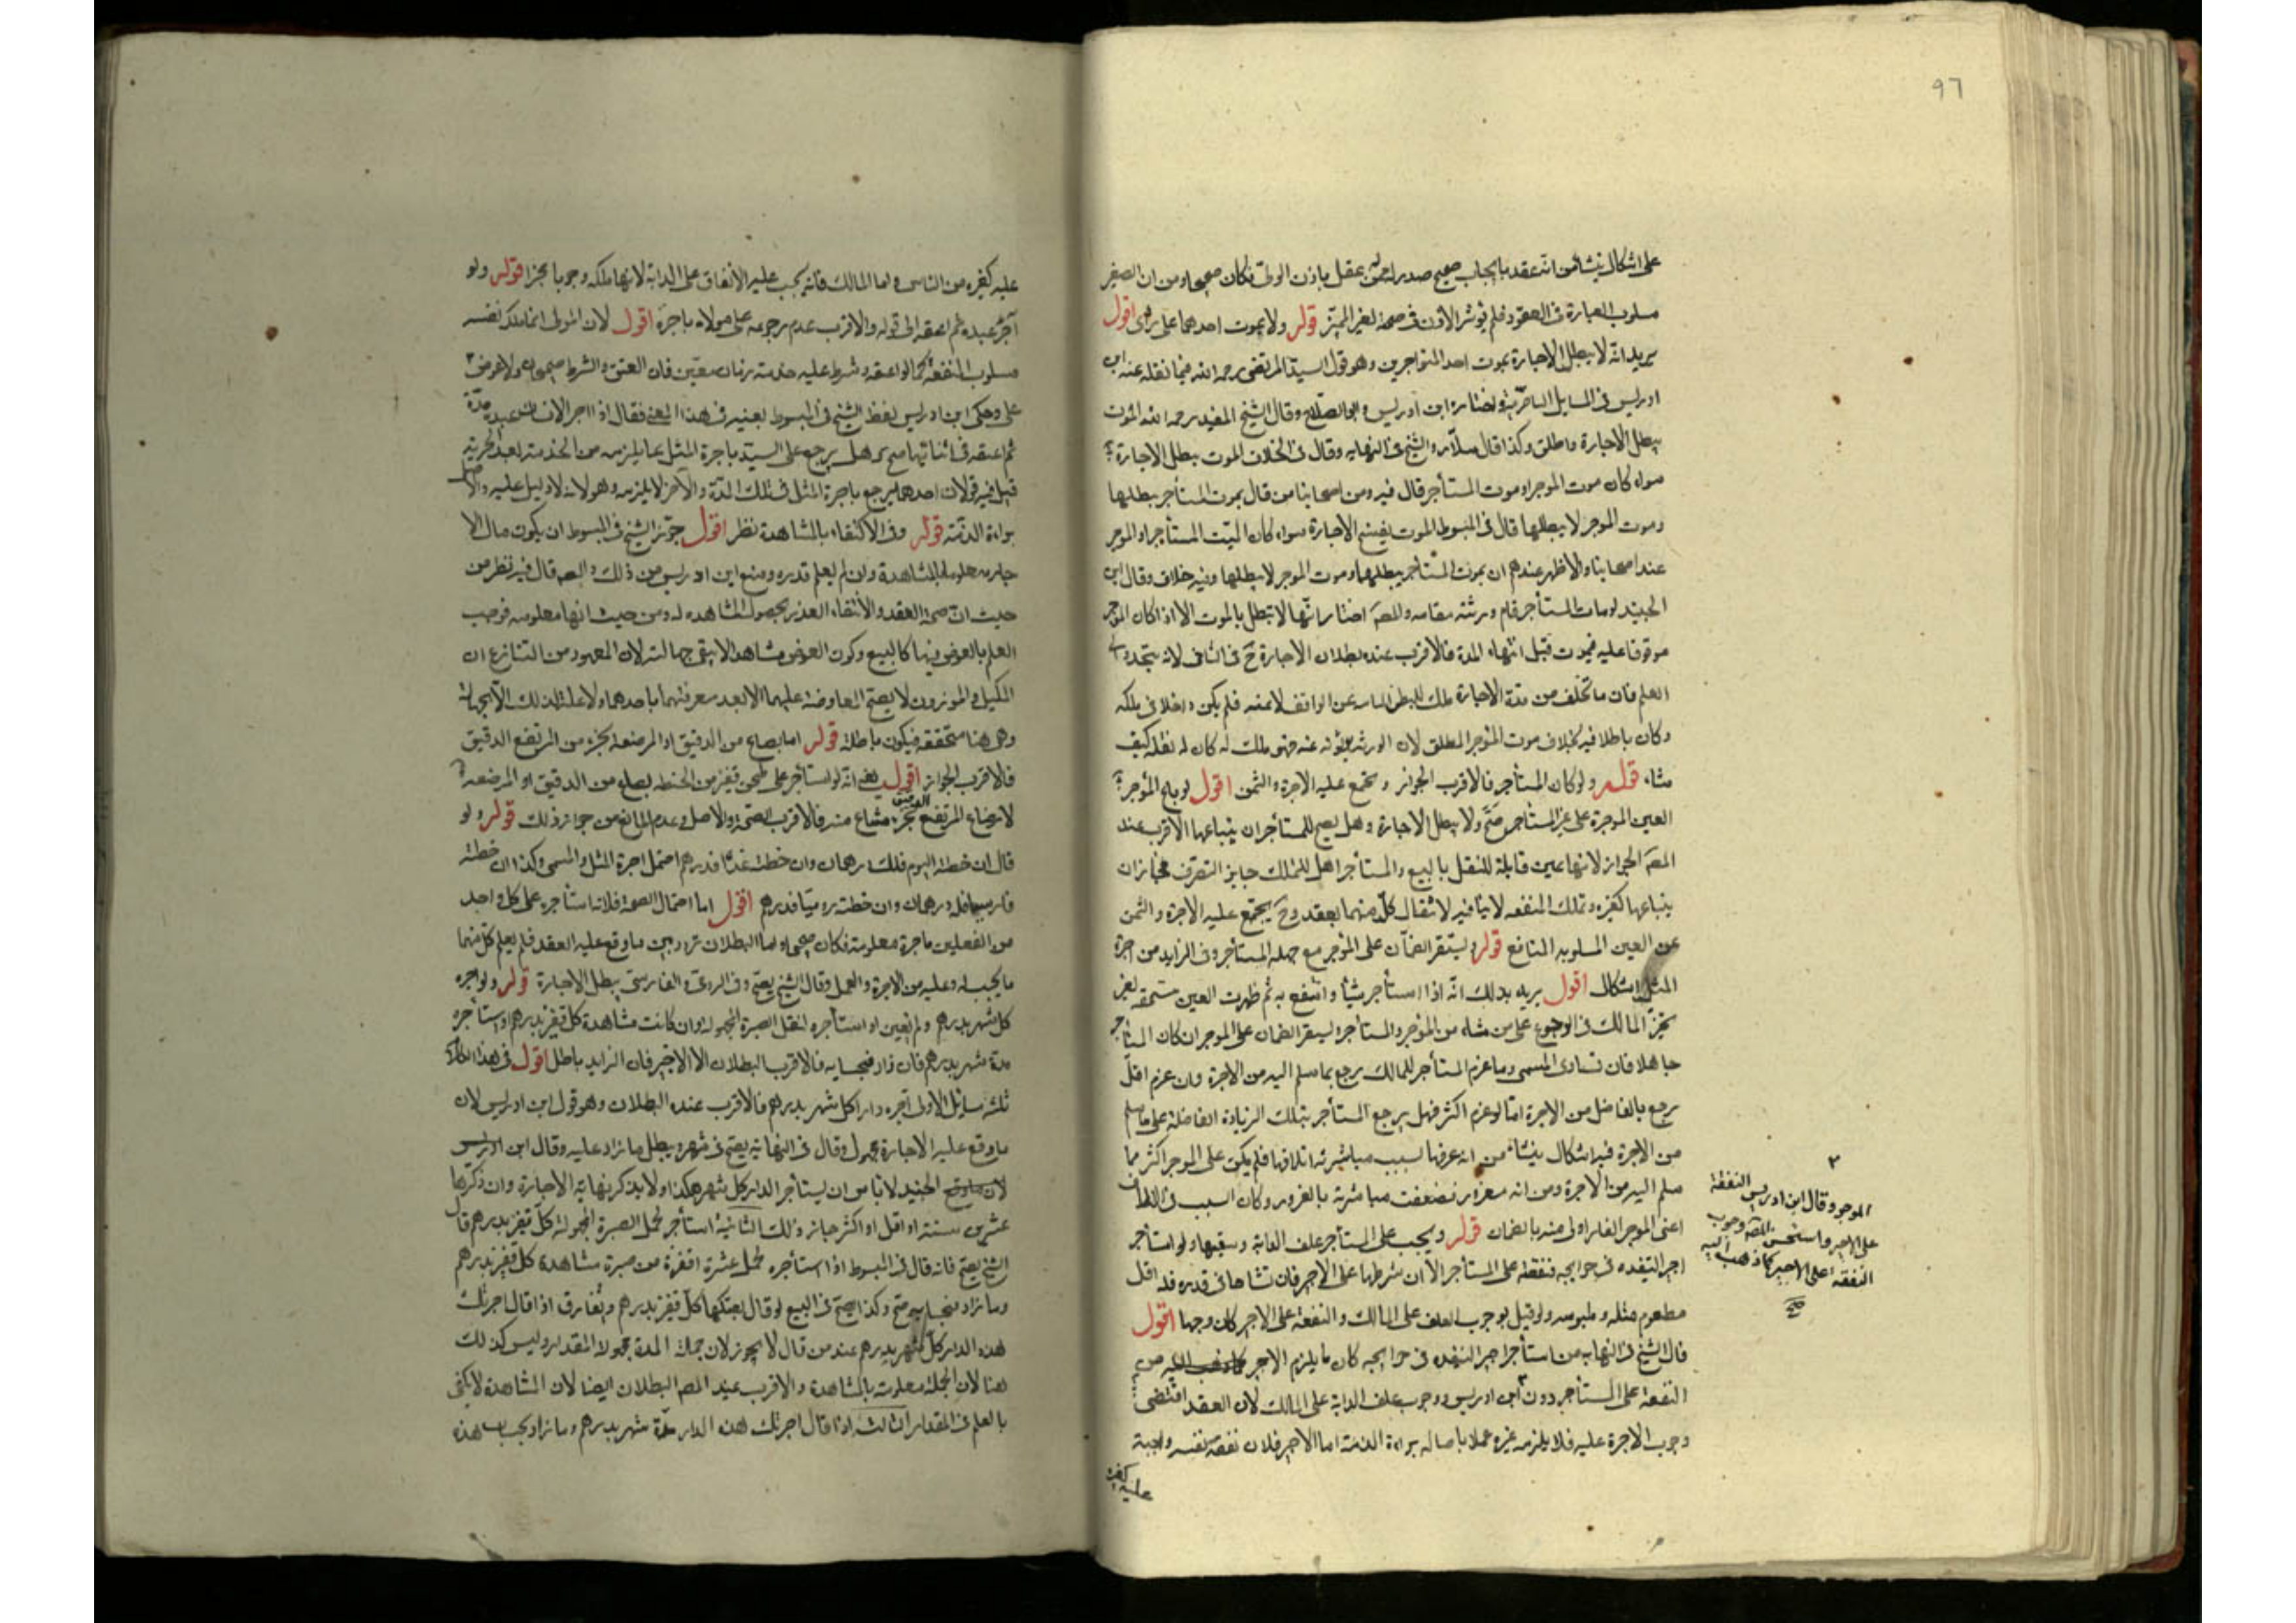 ٩٦
على اشكال ينشأ من انه عقد بايجاب صحيح صدر عقل باذن الولى فكان صحيحا ومن ان الصغير
مسلوب العبارة فى العقود فلم يوثر الاذن فى صحة لغير المميز قوله ولا بموت احدهما على راى اقول
يريد انه لا يبطل الاجارة بموت احد المتواجرين وهو قول السيد المرتضى رحمه الله فيما نقله عنه ابن
ادريس فى المسايل الناصرية واختاره ابن ادريس وابو الصلاح وقال الشيخ المفيد رحمه الله الموت
يبطل الاجارة واطلق وكذا قال سلار والشيخ فى النهايه وقال فى الخلاف الموت يبطل الاجارة
سواء كان موت الموجر او موت المستأجر قال فيه ومن اصحابنا من قال بموت المستأجر يبطلها
وموت الموجر لا يبطلها قال فى المبسوط الموت يفسخ الاجارة سواء كان الميت المستأجر او الموجر
عند اصحابنا والاظهر عندهم ان بموت المستأجر يبطلها وموت الموجر لا يبطلها وفيه خلاف وقال ابن
الجنيد لو مات المستأجر قام ورثته مقامه والمصـ اختار انها لا تبطل بالموت الا اذا كان الموجر
موقوفا عليه فيموت قبل انتهاء المدة فالاقرب عنده بطلان الاجارة ح فى الباقى لانه يتجدد
العلم فان ما تخلف من مدة الاجارة ملك للبطن عن الواقف لا عنه فلم يكن داخلا فى ملكه
وكان باطلا فيه بخلاف موت الموجر المطلق لان الورثه يرثونه عنه فهو ملك له كان له نقله كيف
شاء قوله ولو كان المستأجر فالاقرب الجواز ويجتمع عليه الاجرة والثمن اقول لو باع المؤجر
العين الموجرة على غير المستأجر صح ولا يبطل الاجارة وهل يصح للمستأجر ان يبتاعها الاقرب عند
المصـ الجواز لانها عين قابلة للنقل بالبيع والمستأجر اهل للتملك جايز التصرف فجاز ان
يبتاعها كغيره وتملك المنفعه لا ينافيه لانتقال كل منهما بعقد وح يجتمع عليه الاجرة والثمن
عن العين المسلوبه المنافع قوله ويستقر الضمان على المؤجر مع جهل المستأجر وفى الزايد من اجرة
المثل اشكال اقول يريد بذلك انه اذا استأجر شيئا وانتفع به ثم ظهرت العين مستحقه لغيره
تخير المالك فى الرجوع على من شاء من المؤجر والمستأجر ويستقر الضمان على الموجر ان كان المستأجر
جاهلا فان تساوى المسمى وما غرم المستأجر للمالك يرجع بما سلم اليه من الاجرة وان غرم اقل
رجع بالفاضل من الاجرة اما لو غرم اكثر فهل يرجع المستأجر بتلك الزيادة الفاضلة على ما سلم
من الاجرة فيه اشكال ينشأ من انه غرمها بسبب مباشرته اتلافها فلم يكن على الموجر اكثر مما
سلم اليه من الاجرة ومن انه مغرور فضعفت مباشرته بالغرور وكان السبب فى التلف
اعنى الموجر الغار اولى منه بالضمان قوله ويجب على المستأجر علف الدابة وسقيها ولو استأجر
اجير التنفذه فى حوايجه فنفقته على المستأجر الا ان يشرطها على الاجير فان تشاحا فى قدره فله اقل
مطعوم مثله وملبوسه ولو قيل بوجوب العلف على المالك والنفقة على الاجير كان وجها اقول
قال الشيخ فى النهايه من استأجر اجيرا لينفذه فى حوايجه كان ما يلزم الاجير من
النفقة على المستأجر دون ابن ادريس ووجوب علف الدابة على المالك لان العقد اقتضى
وجوب الاجرة عليه فلا يلزمه غيره عملا باصالة براءة الذمة اما الاجير فلان نفقة نفسه واجبة
عليه كغيره
٣
الموجر وقال ابن ادريس النفقة
على الاجير واستحسن المصـ وجوب
النفقة على الاجير كما ذهب اليه
صح
عليه كغيره من الناس واما المالك فانه يجب عليه الانفاق على الدابة لانها ملكه وجوبا قوله ولو
آجر عبده ثم اعتقه الى قوله والاقرب عدم رجوعه على مولاه باجرة اقول لان المولى انما ملك نفسه
مسلوب المنفعة كما لو اعتقه وشرط عليه خدمته زمان معين فان العتق والشرط صحيحان ولا عوض
على وحكى ابن ادريس لفظ الشيخ فى المبسوط بعينه فى هذا المعنى فقال اذا اجر الانسان عبده مدة
ثم اعتقه فى اثنائها صح وهل يرجع على السيد باجرة المثل عما يلزمه من الخدمة بعد الحرية
قيل فيه قولان احدهما يرجع باجرة المثل فى تلك المدة والآخر لا يلزمه وهو لانه لا دليل عليه والاصل
براءة الذمة قوله وفى الاكتفاء بالمشاهدة نظر اقول جوز الشيخ فى المبسوط ان يكون مال الا
جارة معلوما بالمشاهدة وان لم يعلم قدره ومنع ابن ادريس من ذلك والمصـ قال فيه نظر من
حيث ان صحة العقد والانتفاء الغرر بحصول المشاهده له ومن حيث انها معلومه فوجب
العلم بالعوض فيها كالبيع وكون العوض مشاهدا لا ينفى جهالته لان المعهود من التنازع ان
المكيل والموزون لا يصح المعاوضة عليهما الا بعد معرفتهما باحدهما ولا علة لذلك الا الجهالة
وهى هنا متحققه فيكون باطلة قوله اما بصاع من الدقيق او المرضعة بجزء من المرتضع الرقيق
فالاقرب الجواز اقول يعنى انه لو استأجر على طحن قفيز من الحنطه بصاع من الدقيق او المرضعه
لارضاع المرتضع بجزء مشاع منه فالاقرب الصحة والاصل وعدم المانع من جواز ذلك قوله ولو
قال ان خطته اليوم فلك درهمان وان خطته غدا فدرهم احتمل اجرة المثل والمسمى وكذا ان خطته
فارسيا فله درهمان وان خطته روميا فدرهم اقول اما احتمال الصحة فلانه استأجره على كل واحد
من الفعلين باجرة معلومة فكان صحيحا واما البطلان تردد بين ما وقع عليه العقد فلم يعلم كل منهما
ما يجب له وعليه من الاجرة والعمل وقال الشيخ يصح وفى الرومى والفارسى يبطل الاجارة قوله ولو اجره
كل شهر بدرهم ولم يعين او استأجره لنقل الصبرة المجهولة وان كانت مشاهدة كل قفيز بدرهم او استأجره
مدة شهر بدرهم فان زاد فبحسابه فالاقرب البطلان الا الاخير فان الزايد باطل اقول فى هذا الكلام
ثلث مسايل الاولى آجره دارا كل شهر بدرهم فالاقرب عنده البطلان وهو قول ابن ادريس لان
ما وقع عليه الاجارة مجهول وقال فى النهاية يصح فى شهر ويبطل ما زاد عليه وقال ابن ادريس
الجنيد لا بأس ان يستأجر الدار كل شهر بكذا ولا يذكر نهاية الاجارة وان ذكرها
عشرين سنة او اقل او اكثر جاز ذلك الثانية استأجر لحمل الصبرة المجهولة كل قفيز بدرهم قال
الشيخ يصح فانه قال فى المبسوط اذا استأجره لحمل عشرة اقفزة من صبرة مشاهدة كل قفيز بدرهم
وما زاد فبحسابه صح وكذا يصح فى البيع لو قال بعتكها كل قفيز بدرهم ويفارق اذا قال اجرتك
هذه الدار كل شهر بدرهم عند من قال لا يجوز لان جملة المدة مجهولة المقدار وليس كذلك
هنا لان الجملة معلومة بالمشاهدة والاقرب عند المصـ البطلان ايضا لان المشاهدة لا يكفى
بالعلم فى المقدار الثالث اذا قال اجرتك هذه الدار مدة شهر بدرهم وما زاد هذه